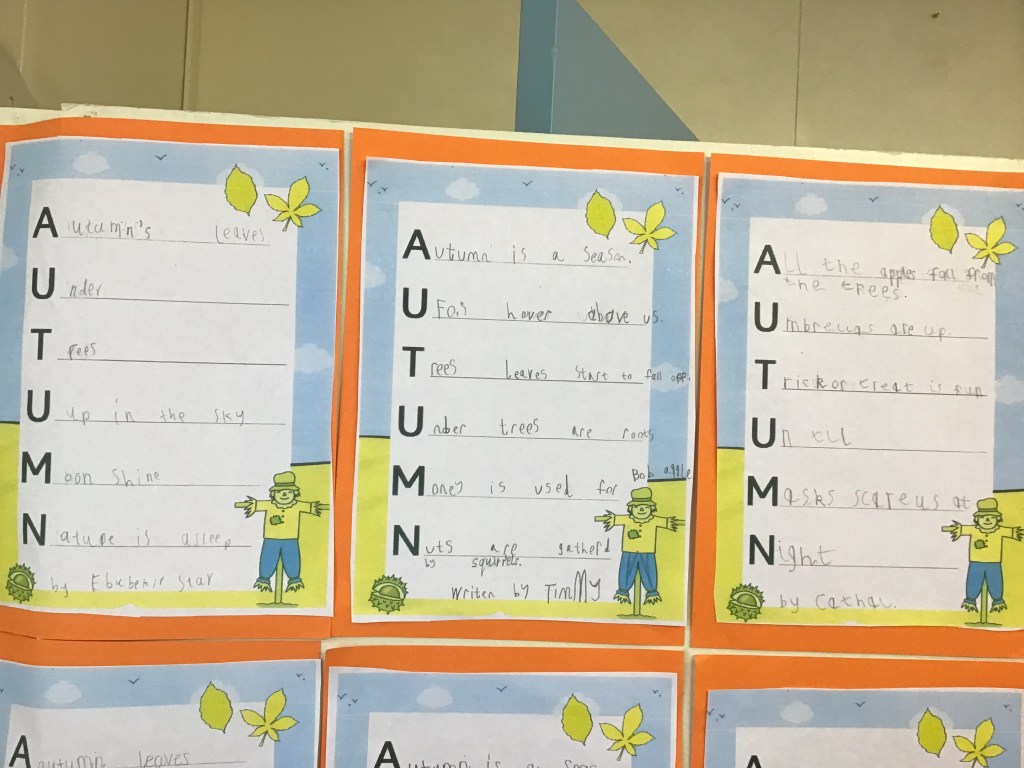 Autumn's leaves
Under
Trees
Uup in the sky
Moon Shine
Nature is asleep
by Ebubekir Star
Autumn is a season.
UFo's hover above us.
Trees leaves start to fall off.
Under trees are roots
Money is used for Bob apple
Nuts are gatherd
by squirrels.
Writen by TimMy
All the apples fall from
the trees.
Umbrellas are up.
Trick or treat is fun
Un till
Masks scare us at
Night
by Cathal.
Aautumn leaves
Autumn is a
A